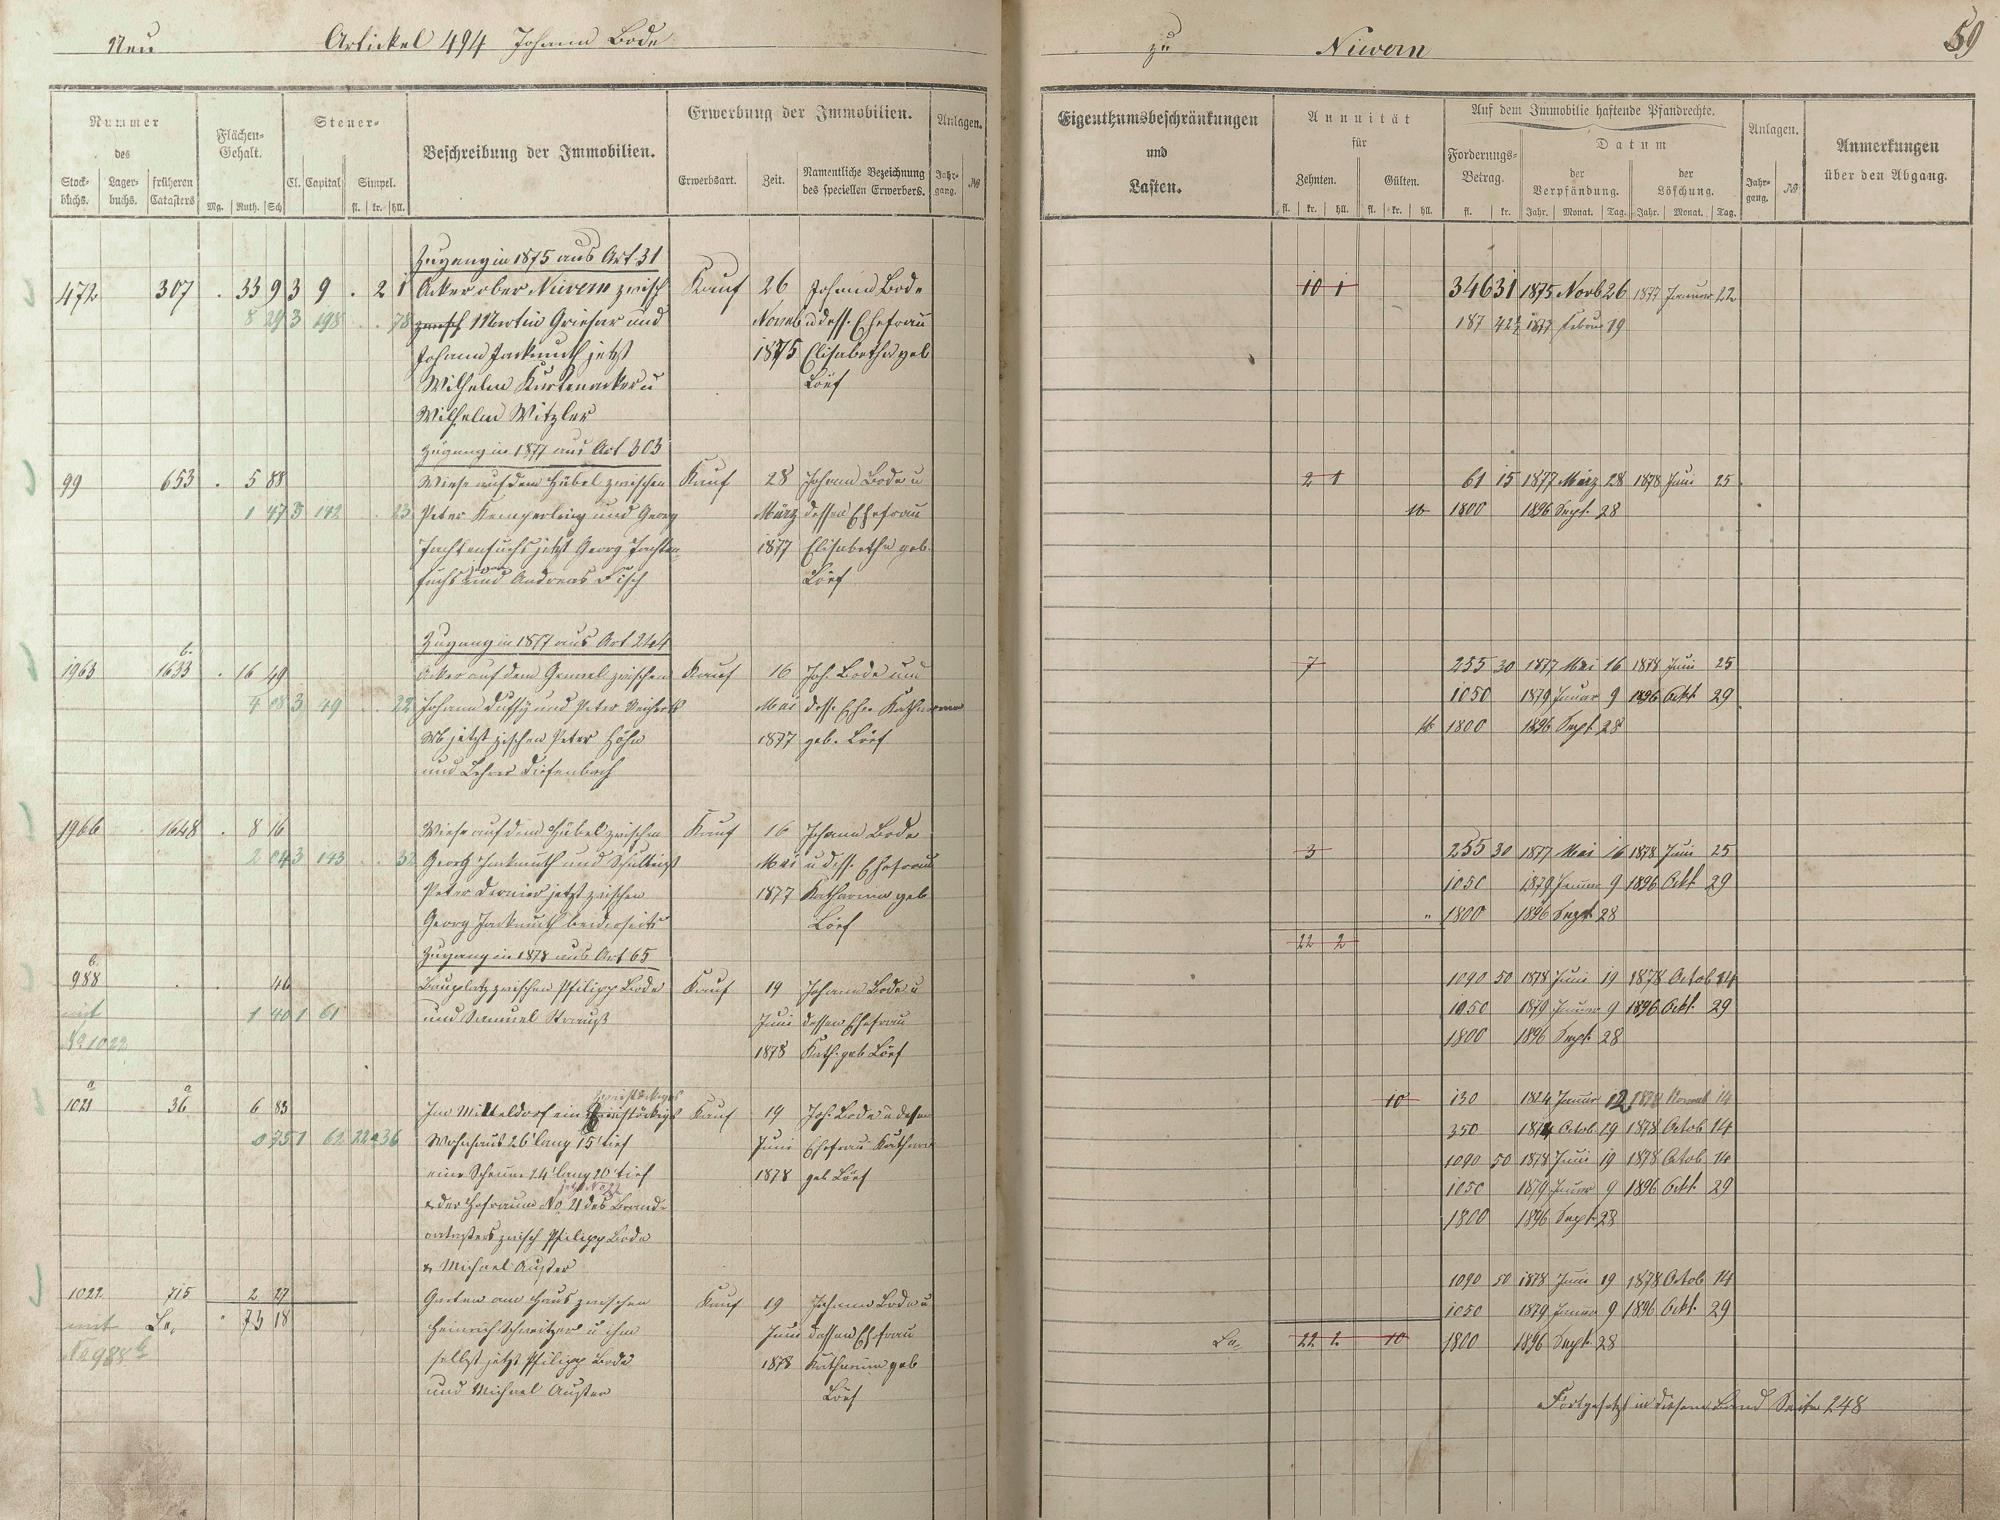 Neu Artickel 494 Johann Bode
zu Nievern 59
Nummer des
Stockbuchs. Lagerbuchs. früheren Catasters
Flächen-Gehalt.
Mg. Ruth. Sch.
Steuer-
Cl. Capital Simpel.
fl. kr. hll.
Beschreibung der Immobilien.
Erwerbung der Immobilien.
Erwerbsart. Zeit. Namentliche Bezeichnung des speciellen Erwerbers.
Anlagen.
Jahrgang. No
Eigenthumsbeschränkungen und Lasten.
Annuität für
Zehnten. Gülten.
fl. kr. hll. fl. kr. hll.
Auf dem Immobilie haftende Pfandrechte.
Forderungs-Betrag.
fl. kr.
Datum
der Verpfändung. der Löschung.
Jahr. Monat. Tag. Jahr. Monat. Tag.
Anlagen.
Jahrgang. No
Anmerkungen über den Abgang.
Zugang in 1875 aus Art 31
472 307 . 33 9 3 9 . 2 1 Acker ober Nievern zwisch Kauf 26 Johann Bode
8 29 3 198 . . 78 zwisch Martin Griesar und Novb u dess. Ehefrau
Johann Jackmuth jetzt 1875 Elisabetha geb
Wilhelm Kurtenacker u Löef
Wilhelm Witzler
Zugang in 1877 aus Art 303
99 653 . 5 88 Wiese auf dem Hübel zwischen Kauf 28 Johann Bode u
1 47 3 142 . 23 Peter Kemperling und Georg März dessen Ehefrau
jetzt Georg 1877 Elisabetha geb.
und Andreas Fisch Löef
Zugang in 1877 aus Art 244
1963 1633 b. . 16 49 Acker auf dem zwischen Kauf 16 Joh. Bode und
4 08 3 49 . . 22 Johann Duffy und Peter Mai dess. Ehe. Katharina
Wb jetzt zischen Peter Höhn 1877 geb. Löef
und Lehrer Diefenbach
1966 1648 . 8 16 Wiese auf dem Hübel zwischen Kauf 16 Johann Bode
2 04 3 143 . . 32 Georg Jackmuth und Schultheiß Mai u dess. Ehefrau
Peter jetzt zwischen 1877 Katharina geb
Georg Jackmuth beiderseits Löef
Zugang in 1878 aus Art 65
988 b. . . 46 Bauplatz zwischen Philipp Bode Kauf 19 Johann Bode u
mit 1 40 1 61 und Samuel Strauß Juni dessen Ehefrau
No 1022 1878 Kath. geb Löef
1021 a 36 a 6 83 Im Mitteldorf ein zweistöckiges Kauf 19 Joh. Bode u dessen
0 75 1 62 Wohnhaus 26' lang 15' tief Juni Ehefrau Kathar
eine Scheuer 24' lang 20' tief 1878 geb Löef
& der Hofraum No 21 des Brand-
catasters zwisch Philipp Bode
& Michael Auster
1022 715 2 27 Garten am Haus zwischen Kauf 19 Johann Bode u
mit La. 73 18 Heinrich Schweitzer u ihm Juni dessen Ehefrau
No 988 b selbst jetzt Philipp Bode 1878 Katharina geb
und Michael Auster Löef
10 1 346 31 1875 Novb 26 1877 Januar 22
187 42½ 1877 Februr 19
2 1 61 15 1877 März 28 1878 Juni 25
1800 1896 Sept. 28
7 255 30 1877 Mai 16 1878 Juni 25
1050 1879 Januar 9 1896 Okt 29
1800 1896 Sept 28
3 255 30 1877 Mai 16 1878 Juni 25
1050 1879 Januar 9 1896 Okt. 29
" 1800 1896 Sept 28
22 2
1090 50 1878 Juni 19 1878 Octob 14
1050 1879 Januar 9 1896 Okt. 29
1800 1896 Sept. 28
10 130 1824 Januar 12 1878 14
350 1874 Octob 29 1878 Octob 14
1090 50 1878 Juni 19 1878 Octob 14
1050 1879 Januar 9 1896 Okt. 29
1800 1896 Sept. 28
1090 50 1878 Juni 19 1878 Octob 14
1050 1879 Januar 9 1896 Okt. 29
La. 22 2 10 1800 1896 Sept. 28
Fortgesetzt in diesem Band Seite 248